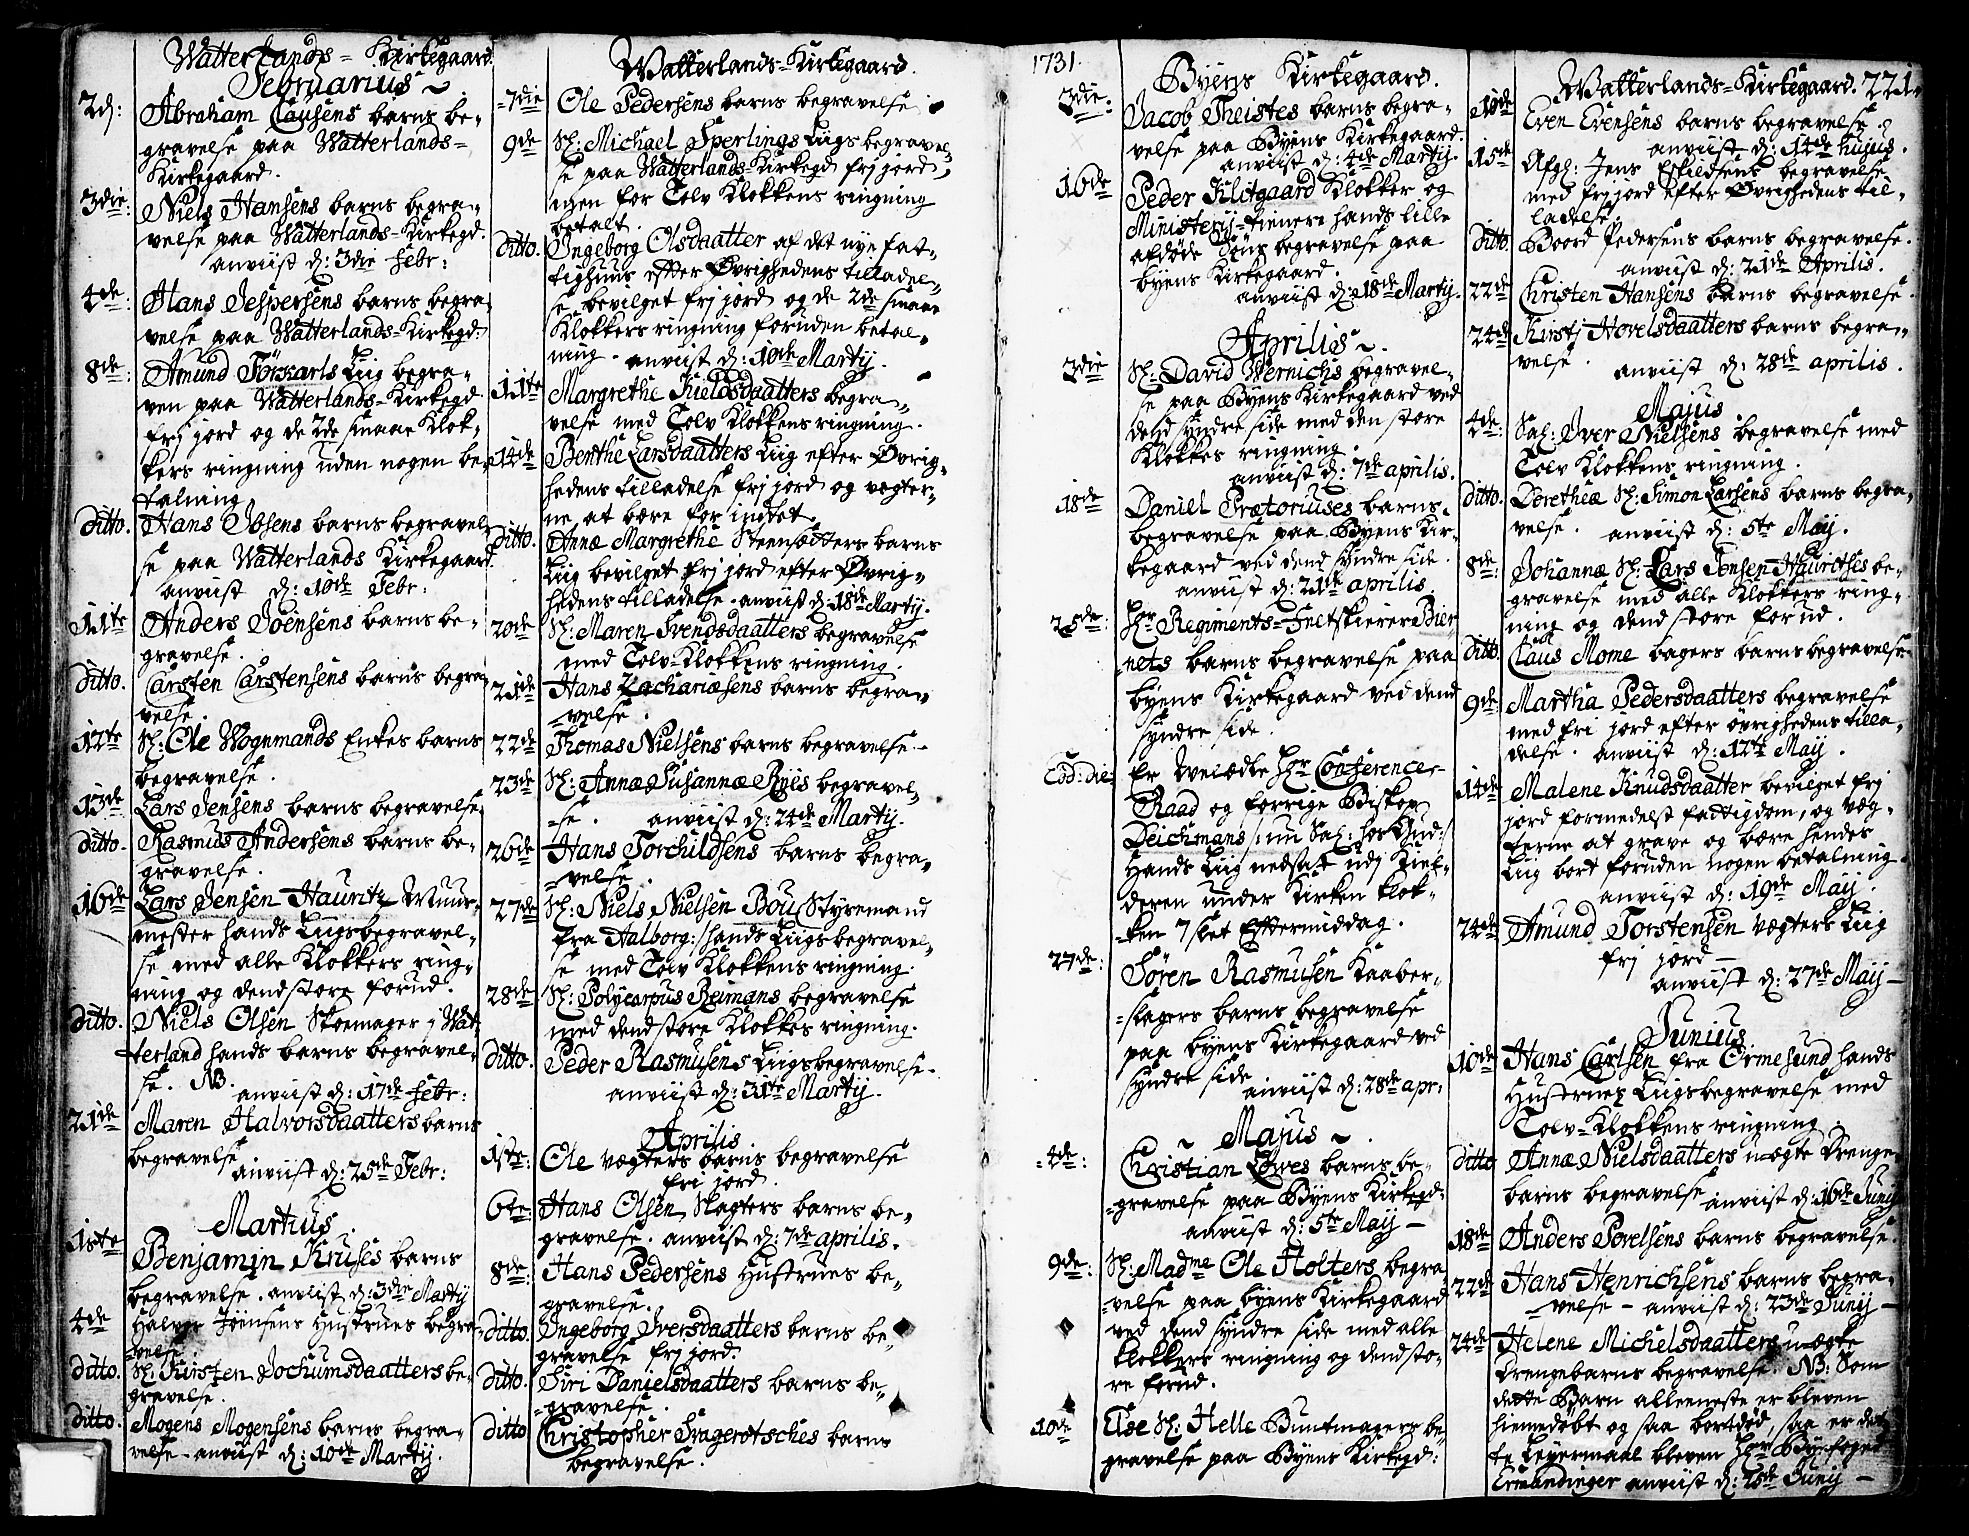 Watterlands = Kirkegaard
Februarius ~
2d: Abraham Clausens barns be-
gravelse paa Watterlands=
Kirkegaard.
3die: Niels Hansens barns begra-
velse paa Watterlands=Kirkegd.
anviist d: 3die Febr:
4de: Hans Jespersens barns begra
velse paa Watterlands=Kirkegd:
8de: Amund Torkarls Liig begra-
ven paa Watterlands=Kirkegd
frj jord og de 2de smaae Klok-
kers ringning uden nogen be-
talning
Ditto. Hans Ibsens barns begravel
se paa Watterlands Kirkegaard.
anviist d: 10de Febr:
11te Anders Joensens barns be-
gravelse.
Ditto. Carsten Carstensens barns begra
velse.
12te Sl: Ole Wognmands Enkes barns
begravelse.
13de Lars Jensens barns begravelse
Ditto. Rasmus Andersens barns be-
gravelse.
16de Lars Jensen Hauritz Muur-
mester hands Liigsbegravel-
se med alle Klokkers ring-
ning og dend store forud.
Ditto. Niels Olsen Skoemager j Wat
terland hands barns begravel-
se. NB. anviist d: 17de Febr:
21de Maren Halvorsdaatters barns
begravelse
anviist d: 25de Febr:
Martius.
1ste Benjamin Kruses barns
begravelse. anviist d: 3die Martij
4de Halvor Joensens Hustrues begra-
velse.
Ditto. Sl: Kirsten Jochumsdaatters be-
gravelse.
Ditto. Mogens Mogensens barns begra-
velse - anviist d: 10de Martij.
Watterlands=Kirkegaard.
7die Ole Pedersens barns begravelse.
9de Sl: Michael Sperlings Liigs begravel-
se paa Watterlands=Kirkegd frj jord,
men for Tolv Klokkens ringning
betalt.
Ditto. Ingeborg Olsdaatter af det nye fat-
tighuus efter Øvrighedens tilladel-
se bevilget frj jord og de 2de smaae
Klokkers ringning foruden betal-
ning. anviist d: 10de Martij.
11te Margrethe Kieldsdaatters begra-
velse med Tolv Klokkens ringning.
14de Benthe Larsdaatters Liig efter Øvrig-
hedens tilladelse frj jord og vegter-
ne at bære for indtet.
Ditto. Annæ Margrethe Steensætters barns
Liig bevilget frj jord efter Øvrig-
hedens tilladelse. anviist d: 18de Martij.
20de Sl: Maren Svendsdaatters begravelse
med Tolv=Klokkens ringning.
21de Hans Zachariæsens barns begra-
velse.
22de Thomas Nielsens barns begravelse -
23de Sl: Annæ Susannæ Ryes begravel-
se. anviist d: 24de Martij.
26de Hans Torchildsens barns begra-
velse.
27de Sl: Niels Nielsen Bou Styremand
fra Aalborg:/ hands Liigsbegravel-
se med Tolv Klokkens ringning.
28de Sl: Polycarpus Reimans begravelse
med dend store Klokkes ringning.
Ditto. Peder Rasmusens Liigsbegravelse.
anviist d: 31te Martij.
Aprilis
1ste: Ole vægters barns begravelse
fri jord.
6te Hans Olsen Slagters barns be-
gravelse. anviist d: 7de aprilis.
8de: Hans Pedersens Hustrues be-
gravelse.
Ditto. Ingeborg Iversdaatters barns be-
gravelse frj jord.
Ditto. Siri Danielsdaatters barns be-
gravelse.
Ditto Christopher Tragerotsches barns
begravelse.
1731.
Byens Kirkegaard.
3die: Jacob Theistes barns begra-
velse paa Byens Kirkegaard.
anviist d: 4de Martij.
16de Peder Klitgaard Klokker og
Ministerij=tienere hands lille
afdøde Søns begravelse paa
byens Kirkegaard.
anviist d: 18de Martij.
Aprilis ~.
3die Sl: David Wernichs begravel-
se paa Byens Kirkegaard ved
dend syndre side med den store
Klokkes ringning.
anviist d: 7de aprilis.
18de Daniel Prætoriuses barns
begravelse paa Byens Kir-
kegaard ved dend syndre side.
anviist d: 21de aprilis
25de: Hr Regiments=Feltskierer Bier-
nets barns begravelse paa
byens Kirkegaard ved dend
syndre side.
Eod: die: Er Welædle Hr Conference-
Raad og forrige Biskop
Deichmans /: nu Sal: hos Gud:/
Hands Liig nedsatt udj Kiel-
deren under Kirken klok-
ken 7 slet Eftermiddag.
27de: Sören Rasmusen Kaaber-
slagers barns begravelse
paa byens Kirkegaard ved
syndre side
anviist d: 28de apr:
~ Majus ~.
4de: Christian Löwes barns be-
gravelse paa Byens Kirkegd:
anviist d: 5te Maij -
9de: Sl: Madme Ole Holters begra
velse paa byens Kirkegaard
ved dend syndre side med alle
Klokkers ringning og dend sto-
re forud.
10de Else Sl: Helle Buntmagers be
gravelse paa Byens Kirkegd:
Watterlands=Kirkegaard. 221.
10de Even Evensens barns begravelse.
anviist d: 14de hujus.
15de Afgl: Jens Eskildsens begravelse
med frj jord efter Øvrighedens til-
ladelse.
Ditto. Boord Pedersens barns begravelse.
anviist d: 21de Aprilis.
22de Christen Hansens barns begravelse.
24de Kirstj Hovelsdaatters barns begra-
velse. anviist d: 28de aprilis.
Majus.
4de: Sal: Iver Nielsens begravelse med
Tolv Klokkens ringning.
Ditto. Dorotheæ Sl: Simon Larsens barns begra-
velse. anviist d: 5te Maij.
8de: Johannæ Sl: Lars Jensen Hauritses be-
gravelse med alle Klokkers ring-
ning og dend store forud.
Ditto Claus Mome bagers barns begravelse.
9de: Martha Pedersdaatters begravelse
med fri jord efter øvrighedens tilla-
delse. anviist d: 12te Maij.
14de Malene Knudsdaatter bevilget frj
jord formedelst fattigdom, og væg-
terne at grave og bære hendes
Liig bort foruden nogen betalning.
anviist d: 19de Maij.
24de Amund Torstensen vægters Liig
frj jord -
anviist d: 27de Maij -
Junius.
10de Hans Carlsen fra Ormesund hands
Hustrues Liigsbegravelse med
Tolv=Klokkens ringning
Ditto Annæ Nielsdaatters uægte Drenge
barns begravelse anviist d: 16de Junij
18de Anders Povelsens barns begravelse.
22de Hans Henrichsens barns begra-
velse - anviist d: 23de Junij -
24de Helene Michelsdaatters uægte
Drengebarns begravelse. NB. Som
dette Barn alleeneste er bleven
hiemedøbt og saa bortdød, saa er det
te Leyermaal bleven Hr Byefoged
Ermandinger anviist d: 25de Junij -